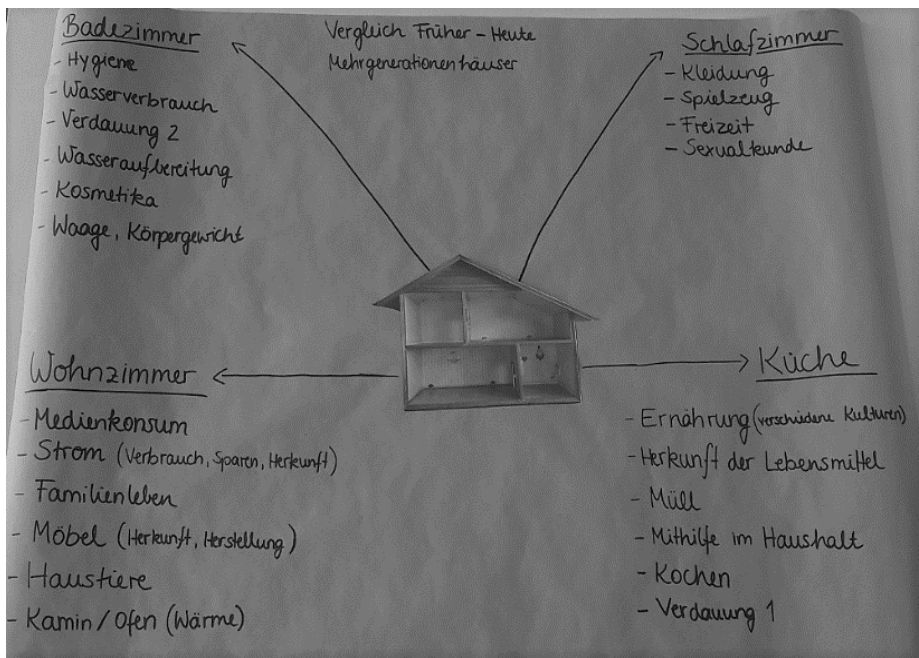 Badezimmer
- Hygiene
- Wasserverbrauch
- Verdauung 2
- Wasseraufbereitung
- Kosmetika
- Waage, Körpergewicht
Vergleich Früher - Heute
Mehrgenerationenhäuser
Schlafzimmer
- Kleidung
- Spielzeug
- Freizeit
- Sexualkunde
Wohnzimmer
- Medienkonsum
- Strom (Verbrauch, Sparen, Herkunft)
- Familienleben
- Möbel (Herkunft, Herstellung)
- Haustiere
- Kamin / Ofen (Wärme)
Küche
- Ernährung (verschiedene Kulturen)
- Herkunft der Lebensmittel
- Müll
- Mithilfe im Haushalt
- Kochen
- Verdauung 1